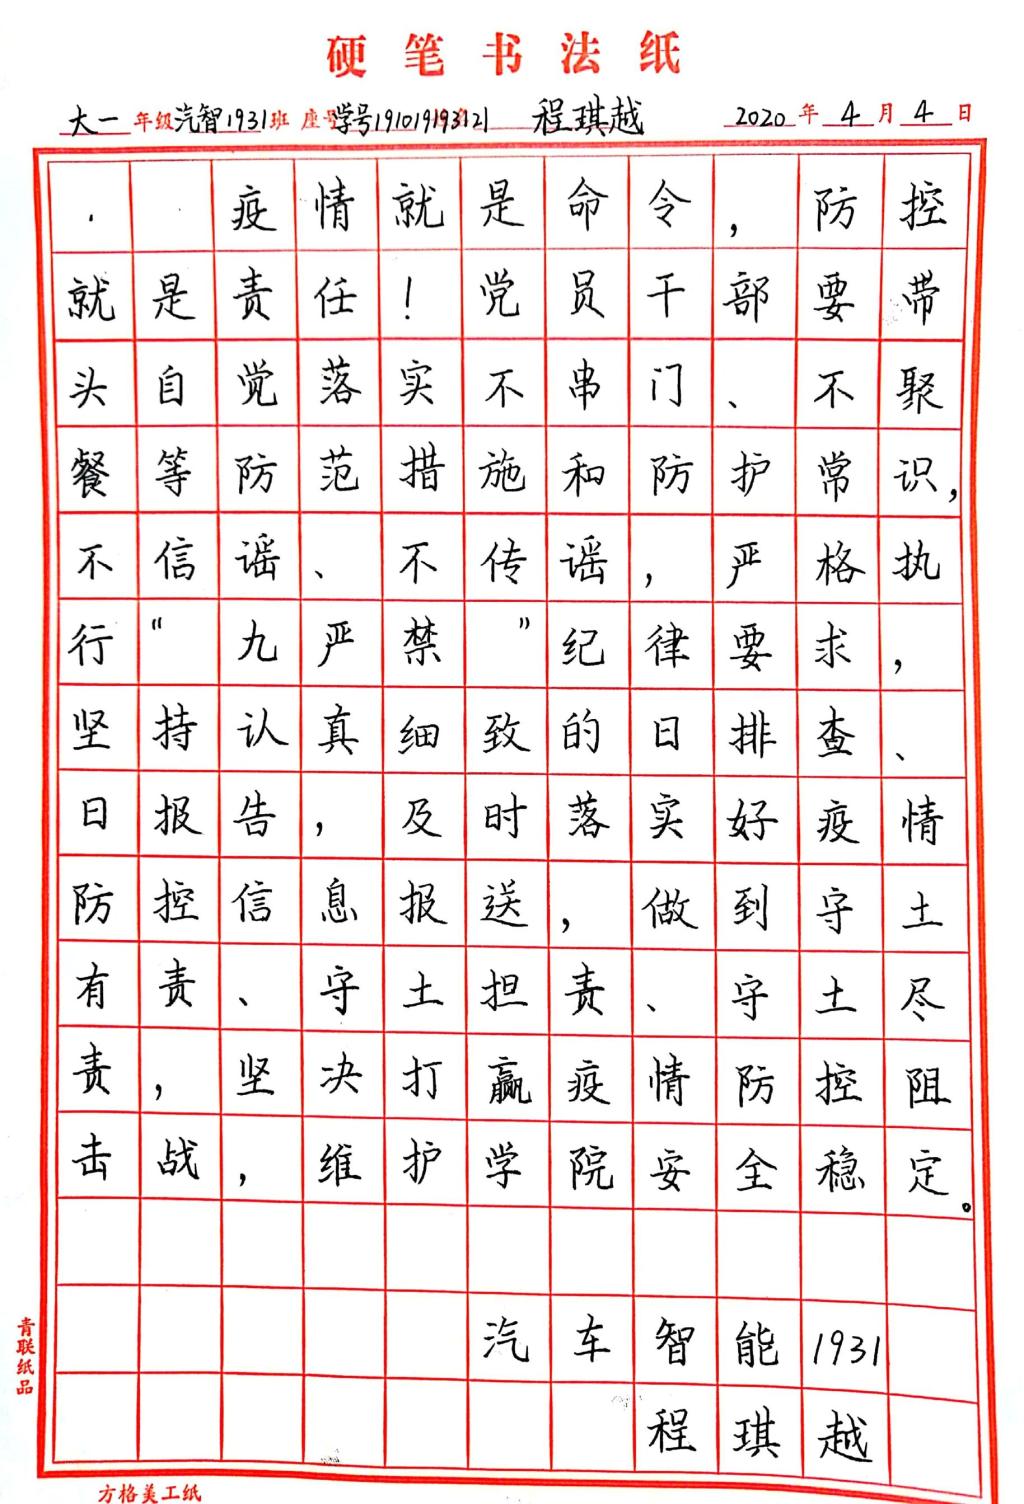 硬笔书法纸
大一年级汽智1931班 座号学号191019193121 程琪越 2020年4月4日
疫情就是命令，防控
就是责任！党员干部要带
头自觉落实不串门、不聚
餐等防范措施和防护常识，
不信谣、不传谣，严格执
行“九严禁”纪律要求，
坚持认真细致的日排查、
日报告，及时落实好疫情
防控信息报送，做到守土
有责、守土担责、守土尽
责，坚决打赢疫情防控阻
击战，维护学院安全稳定。
汽车智能1931
程琪越
青联纸品
方格美工纸